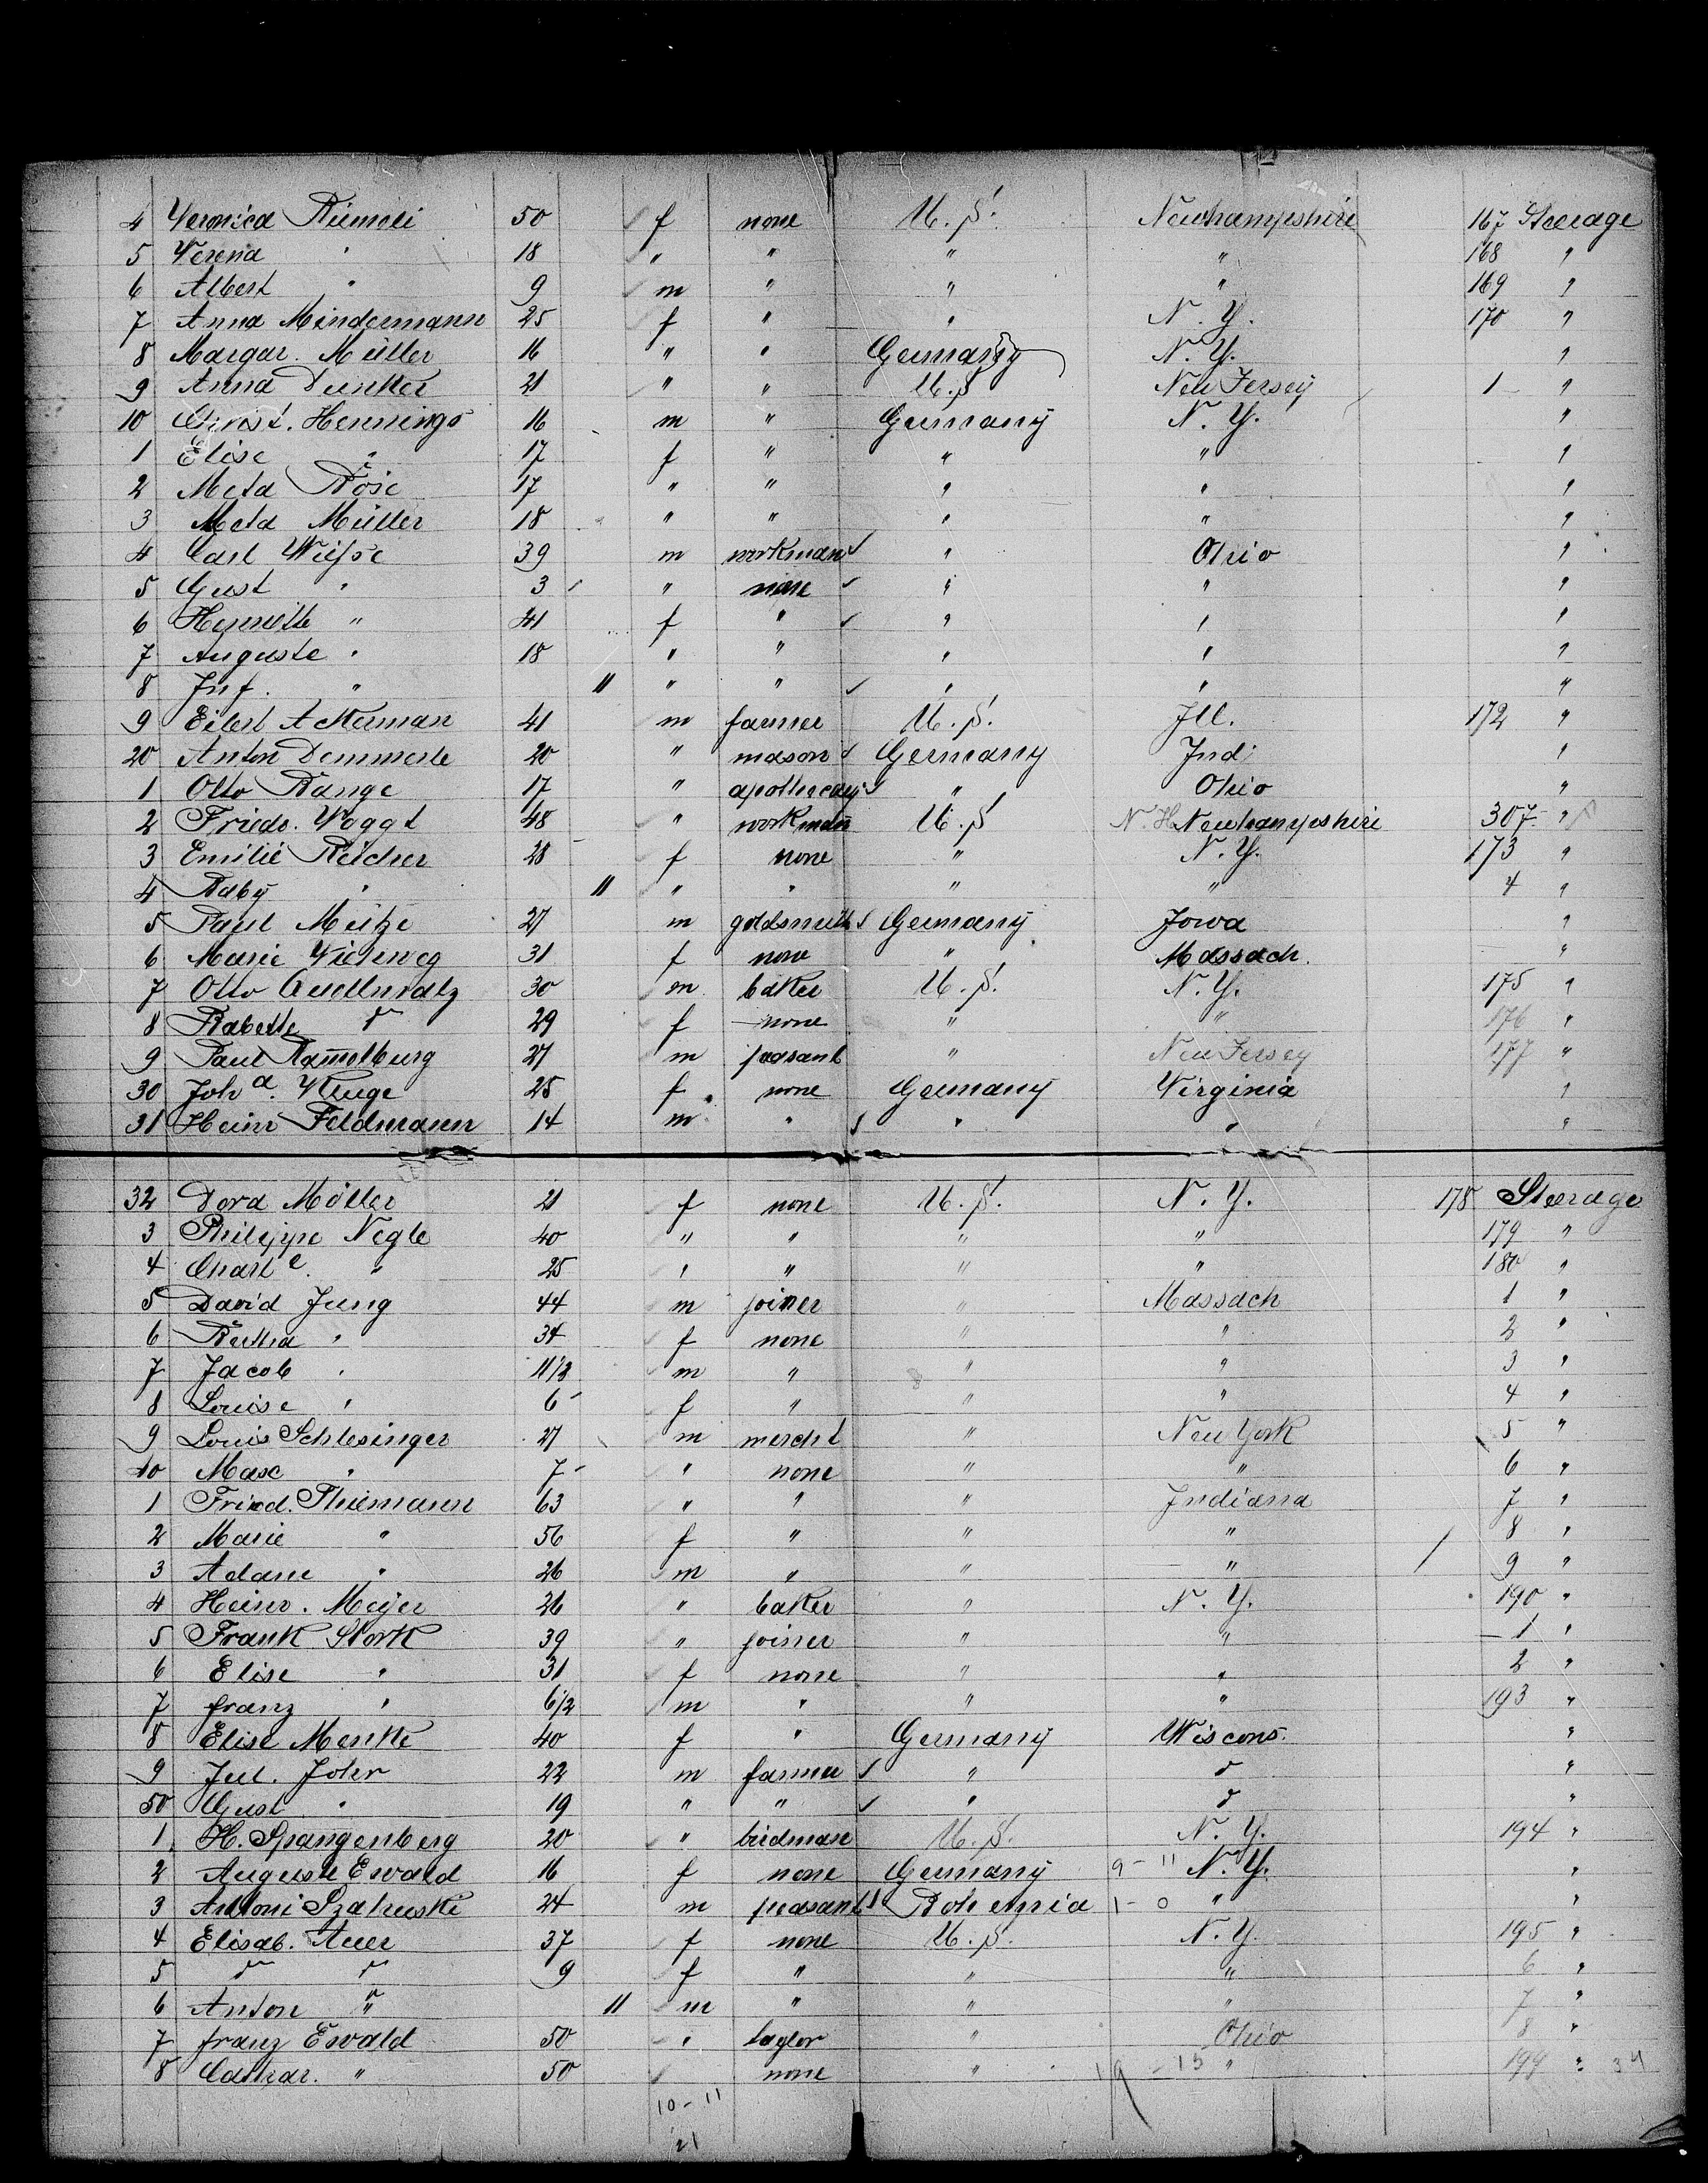 4 Veronica Rümeli 50 f none U. S. Newhampshire 167 Steerage
5 Verena " 18 " " " " 168 "
6 Albert " 9 m " " " 169 "
7 Anna Mindermann 25 f " " N. Y. 170 "
8 Margar. Müller 16 " " Germany N. Y. "
9 Anna Dunker 21 " " U. S New Jersey 1 "
10 Christ. Hennings 16 m " Germany N. Y. "
1 Elise " 17 f " " " "
2 Meta Röse 17 " " " " "
3 Meta Müller 18 " " " " "
4 Carl 39 m workman " Ohio "
5 Gust " 3 " none " " "
6 Henriette " 41 f " " " "
7 Auguste " 18 " " " " "
8 Inf. " 11 " " " " "
9 Eilert Ackerman 41 m farmer U. S. Ill. 172 "
20 Anton Demmerle 20 " mason Germany Ind. "
1 Otto Range 17 " apothecary " Ohio "
2 Friedr. Voggt 48 " workman U. S N. H. Newhampshire 307 "
3 Emilie Reicher 28 f none " N. Y. 173 "
4 Baby " 11 " " " " 4 "
5 Paul 27 m goldsmith Germany Iowa "
6 Marie 31 f none " Massach. "
7 Otto 30 m baker U. S. N. Y. 175 "
8 Babette d 29 f none " " 176 "
9 Paul Ram̅elburg 27 m peasant " New Jersey 177 "
30 Joh a. Kluge 25 f none Germany Virginia "
31 Heinr Feldmann 14 m " " " "
32 Dora Möller 21 f none U. S. N. Y. 178 Steerage
3 Philippe Negle 40 " " " " 179 "
4 Charl e. " 25 " " " " 180 "
5 David Jung 44 m joiner " Massach 1 "
6 " 34 f none " " 2 "
7 Jacob " 11 1/2 m " " " 3 "
8 Louise " 6 f " " " 4 "
9 Louis Schlesinger 27 m mercht " New York 5 "
40 Max " 7 " none " " 6 "
1 Fried. Thiemann 63 " " " Indiana 7 "
2 Marie " 56 f " " " 8 "
3 Adam " 26 m " " " 9 "
4 Heinr. Meÿer 26 " baker " N. Y. 190 "
5 Frank Stork 39 " joiner " " 1 "
6 Elise " 31 f none " " 2 "
7 franz " 6 1/2 m " " " 193 "
8 Elise Menke 40 f " Germany Wiscons. "
9 Jul. John 22 m farmer " d "
50 Gust " 19 " " " d "
1 H. Spangenberg 20 " birdman U. S. N. Y. 194 "
2 Auguste Ewald 16 f none Germany 9 - 11 N. Y. "
3 Antoni 24 m peasant Bohemia 1 - 0 " "
4 Elisab. Auer 37 f none U. S. N. Y. 195 "
5 d d 9 f " " " 6 "
6 Anton " 11 m " " " 7 "
7 franz Ewald 50 " taylor " Ohio 8 "
8 Cathar. " 50 none " 19 - 15 " 199 " 34
10 - 11
21